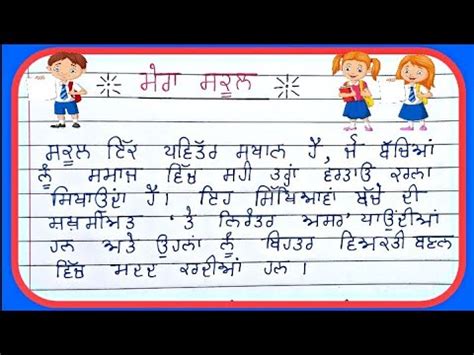 ਮੇਰਾ ਸਕੂਲ
ਸਕੂਲ ਇੱਕ ਪਵਿੱਤਰ ਸਥਾਨ ਹੈ, ਜੋ ਬੱਚਿਆਂ
ਨੂੰ ਸਮਾਜ ਵਿੱਚ ਸਹੀ ਤਰ੍ਹਾਂ ਵਰਤਾਉ ਕਰਨਾ
ਸਿਖਾਉਂਦਾ ਹੈ। ਇਹ ਸਿੱਖਿਆਵਾਂ ਬੱਚੇ ਦੀ
ਸ਼ਖ਼ਸੀਅਤ 'ਤੇ ਨਿਰੰਤਰ ਅਸਰ ਪਾਉਂਦੀਆਂ
ਹਨ ਅਤੇ ਉਹਨਾਂ ਨੂੰ ਬਿਹਤਰ ਵਿਅਕਤੀ ਬਣਨ
ਵਿੱਚ ਮਦਦ ਕਰਦੀਆਂ ਹਨ।